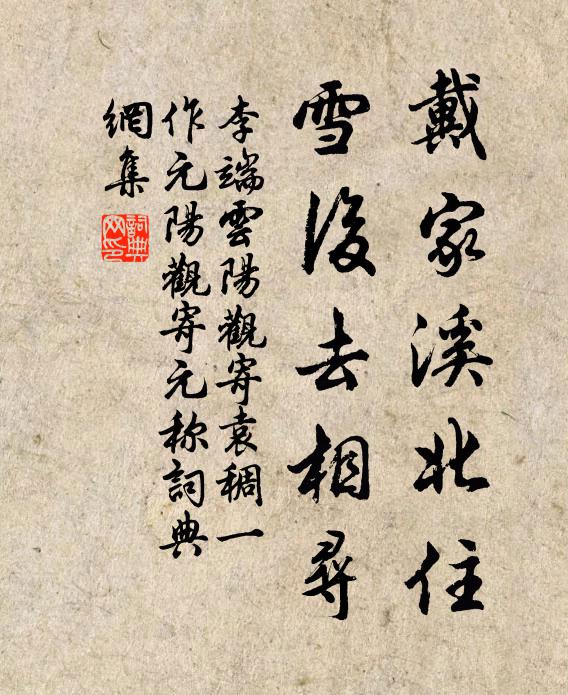 戴家溪北住
雪後去相尋
李端雲陽觀寄袁稠一
作元陽觀寄元称詞典
網集
詞典網印